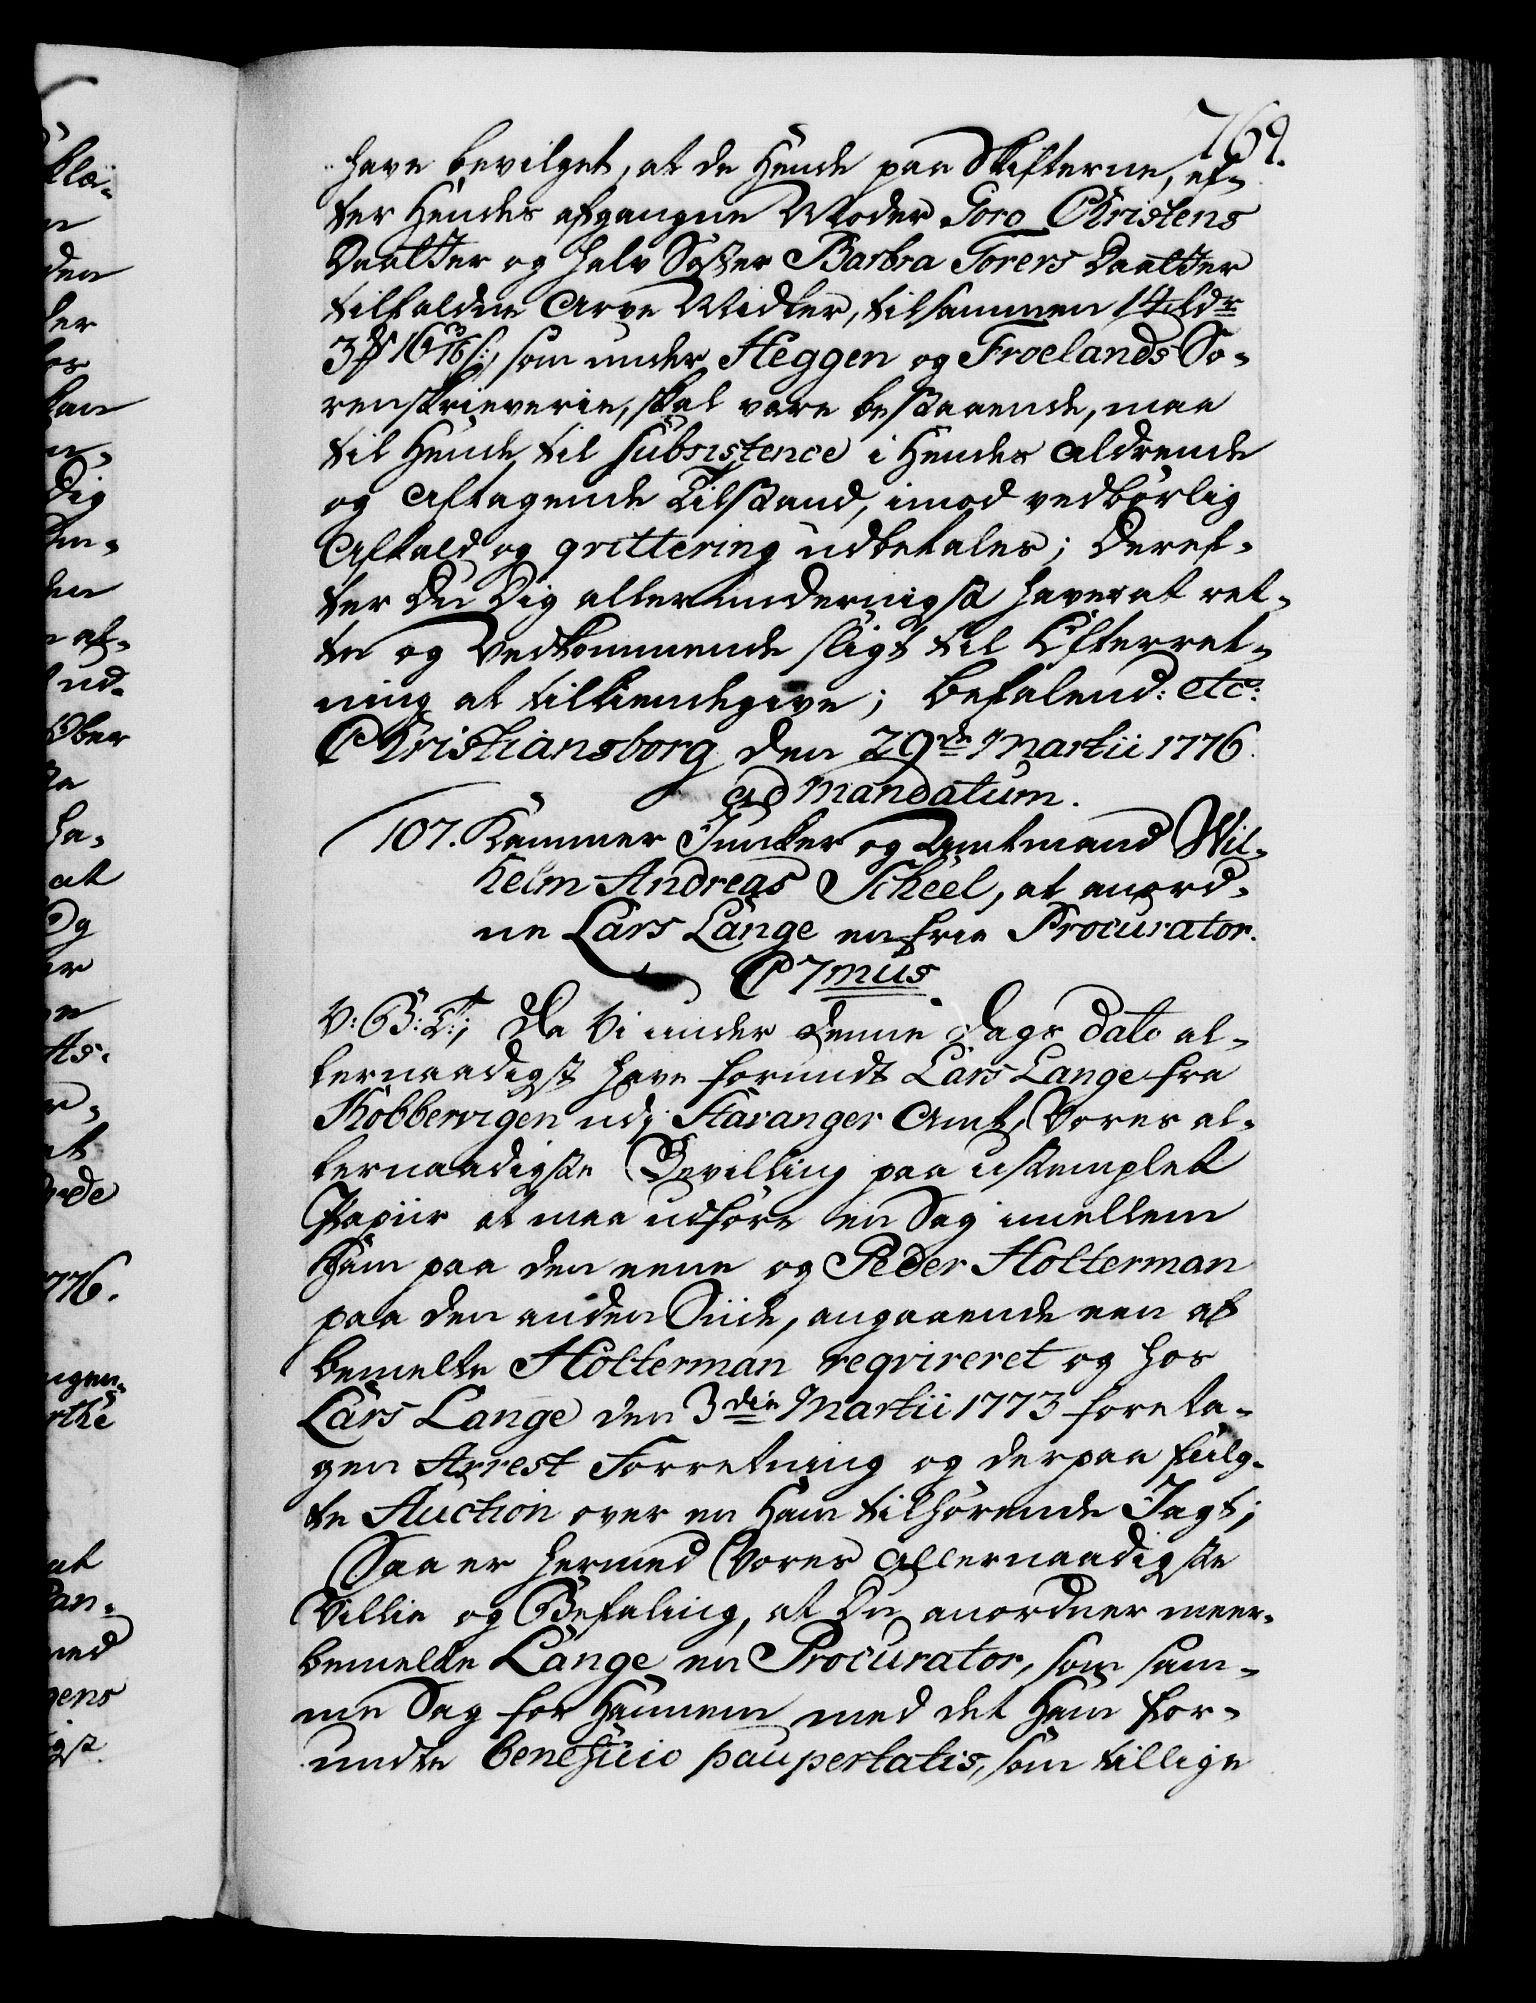 769.
have bevilget, at de Hende paa Skifterne, ef-
ter Hendes afgangne Moder Goro Christens
Daatter og halv Søster Barbra Torers Daatter
tilfaldne Arve Midler, tilsammen 14 Rdr
3 ₰ 16 s:, som under Heggen og Froelands So-
renskriverie, skal være bestaaende, maa
til Hende til subsistence i Hendes aldrende
og aftagende Tilstand, imod vedbørlig
Afkald og qvittering udbetales; Deref-
ter Du Dig allerunderdanigst haver at ret-
te og Vedkommende sligt til Efterret-
ning at tilkiendegive; Befalend: etc:
Christiansborg den 29de Martii 1776.
ad mandatum.
107. Kammer Juncker og Amtmand Wil-
helm Andreas Scheel, at anord-
ne Lars Lange en frie Procurator.
C 7mus
V: G: T:; Da Vi under Denne Dags Dato al-
lernaadigst have forundt Lars Lange fra
Kobbervigen udj Stavanger Amt, Vores al-
lernaadigste Bevilling paa ustemplet
Papiir at maa udføre en Sag imellem
Ham paa den eene og Peder Holterman
paa den anden Siide, angaaende een af
bemelte Holterman reqvireret og hos
Lars Lange den 3die Martii 1773 foreta-
gen Arrest Forretning og derpaa fulg-
te Auction over en Ham tilhørende Jagt;
Saa er hermed Vores allernaadigste
Villie og Befaling, at Du anordner meer-
bemelte Lange en Procurator, som sam-
me Sag for Hannem med det Ham for-
undte beneficio paupertatis, som tillige